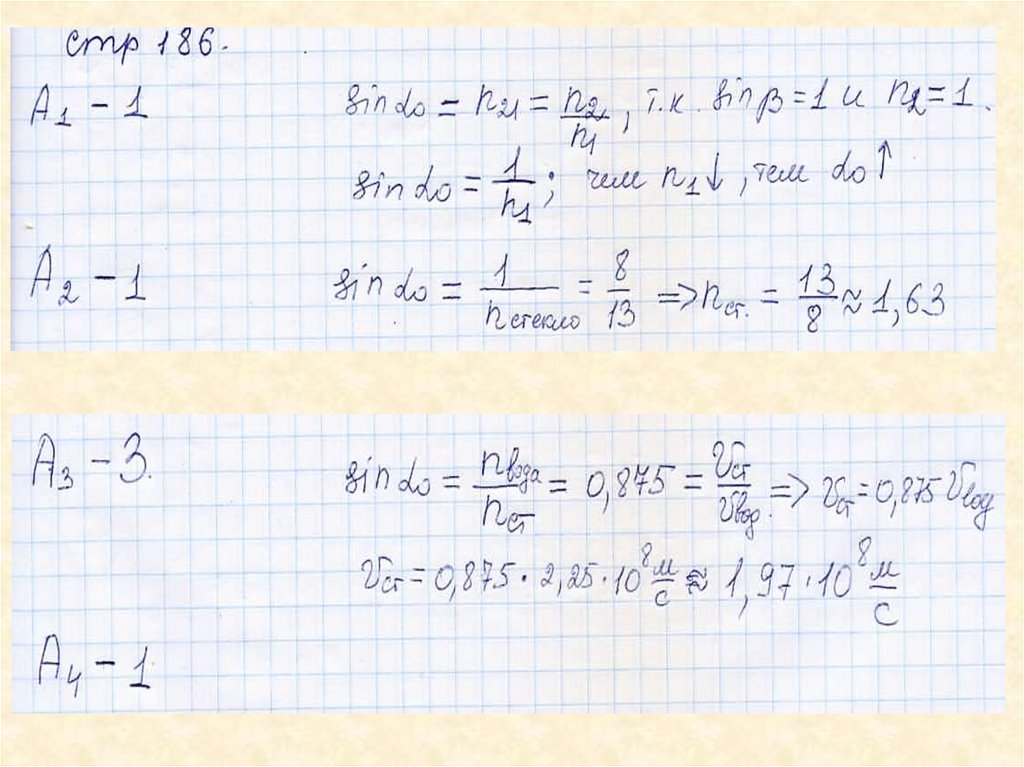 стр 186.
A₁ - 1 sin α₀ = n₂₁ = n₂/n₁, т.к. sin β = 1 и n₂ = 1.
sin α₀ = 1/n₁; чем n₁ ↓, тем α₀ ↑
A₂ - 1 sin α₀ = 1/n стекло = 8/13 => n ст. = 13/8 ≈ 1,63
A₃ - 3. sin α₀ = n вода/n ст = 0,875 = υ ст/υ вод. => υ ст = 0,875 υ вод
υ ст = 0,875 · 2,25 · 10⁸ м/с ≈ 1,97 · 10⁸ м/с
A₄ - 1